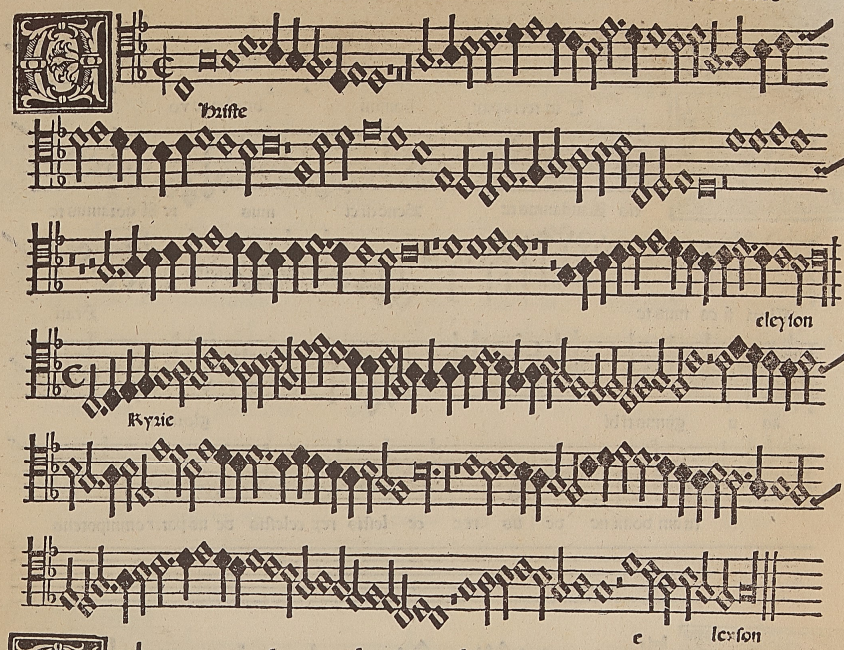 Christe
eleyson
Kyrie
e leyson